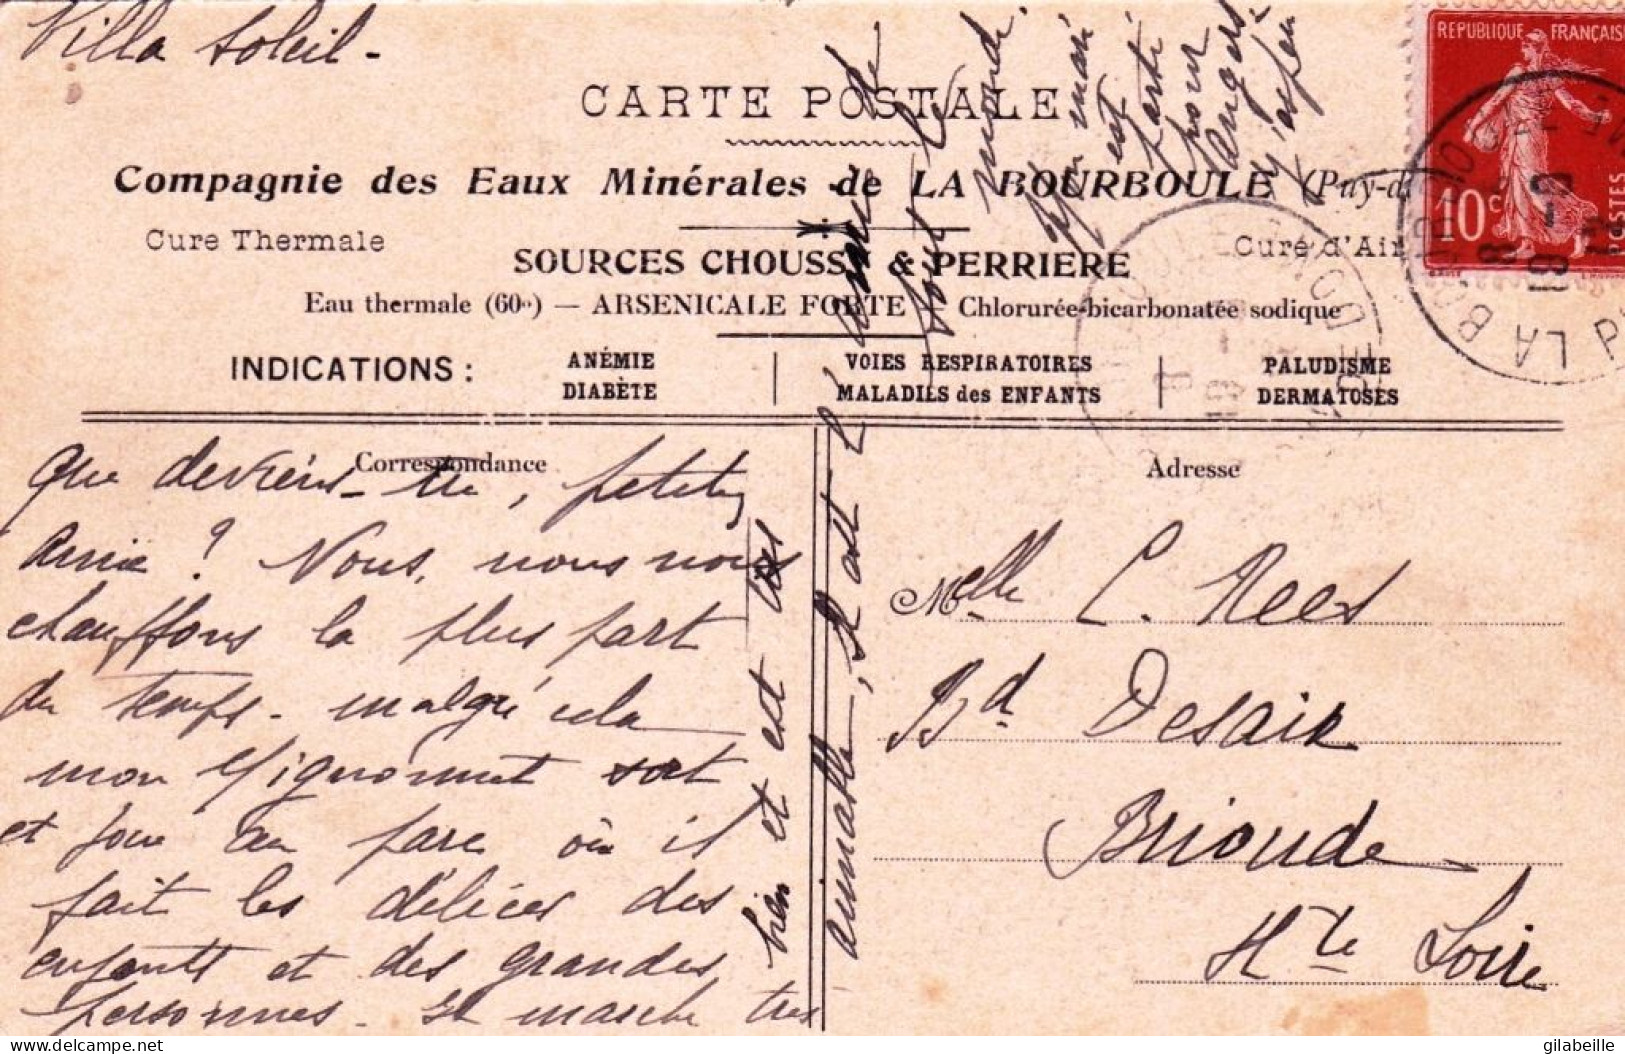 Villa Soleil -
CARTE POSTALE
Compagnie des Eaux Minérales de LA BOURBOULE (Puy-d
Cure Thermale
Cure d'Air
SOURCES CHOUSSY & PERRIERE
Eau thermale (60°) — ARSENICALE FORTE — Chlorurée-bicarbonatée sodique
INDICATIONS :
ANÉMIE
DIABÈTE
VOIES RESPIRATOIRES
MALADIES des ENFANTS
PALUDISME
DERMATOSES
Correspondance
Que deviens-tu, petite
amie ? Nous, nous nous
chauffons la plus part
du temps - malgré cela
mon Mignonnet sort
et joue au parc où il
fait les délices des
enfants et des grandes
personnes - Il marche très
bien et est très
aimable, il est l'
ami de
tout le
monde.
Mon mari
est
parti
pour
Angers
Adresse
Melle C. Rees
Bd Desaix
Brioude
Hte Loire
REPUBLIQUE FRANÇAISE
10c
POSTES
LA BOURBOULE
PUY-DE-DOME
delcampe.net
gilabeille